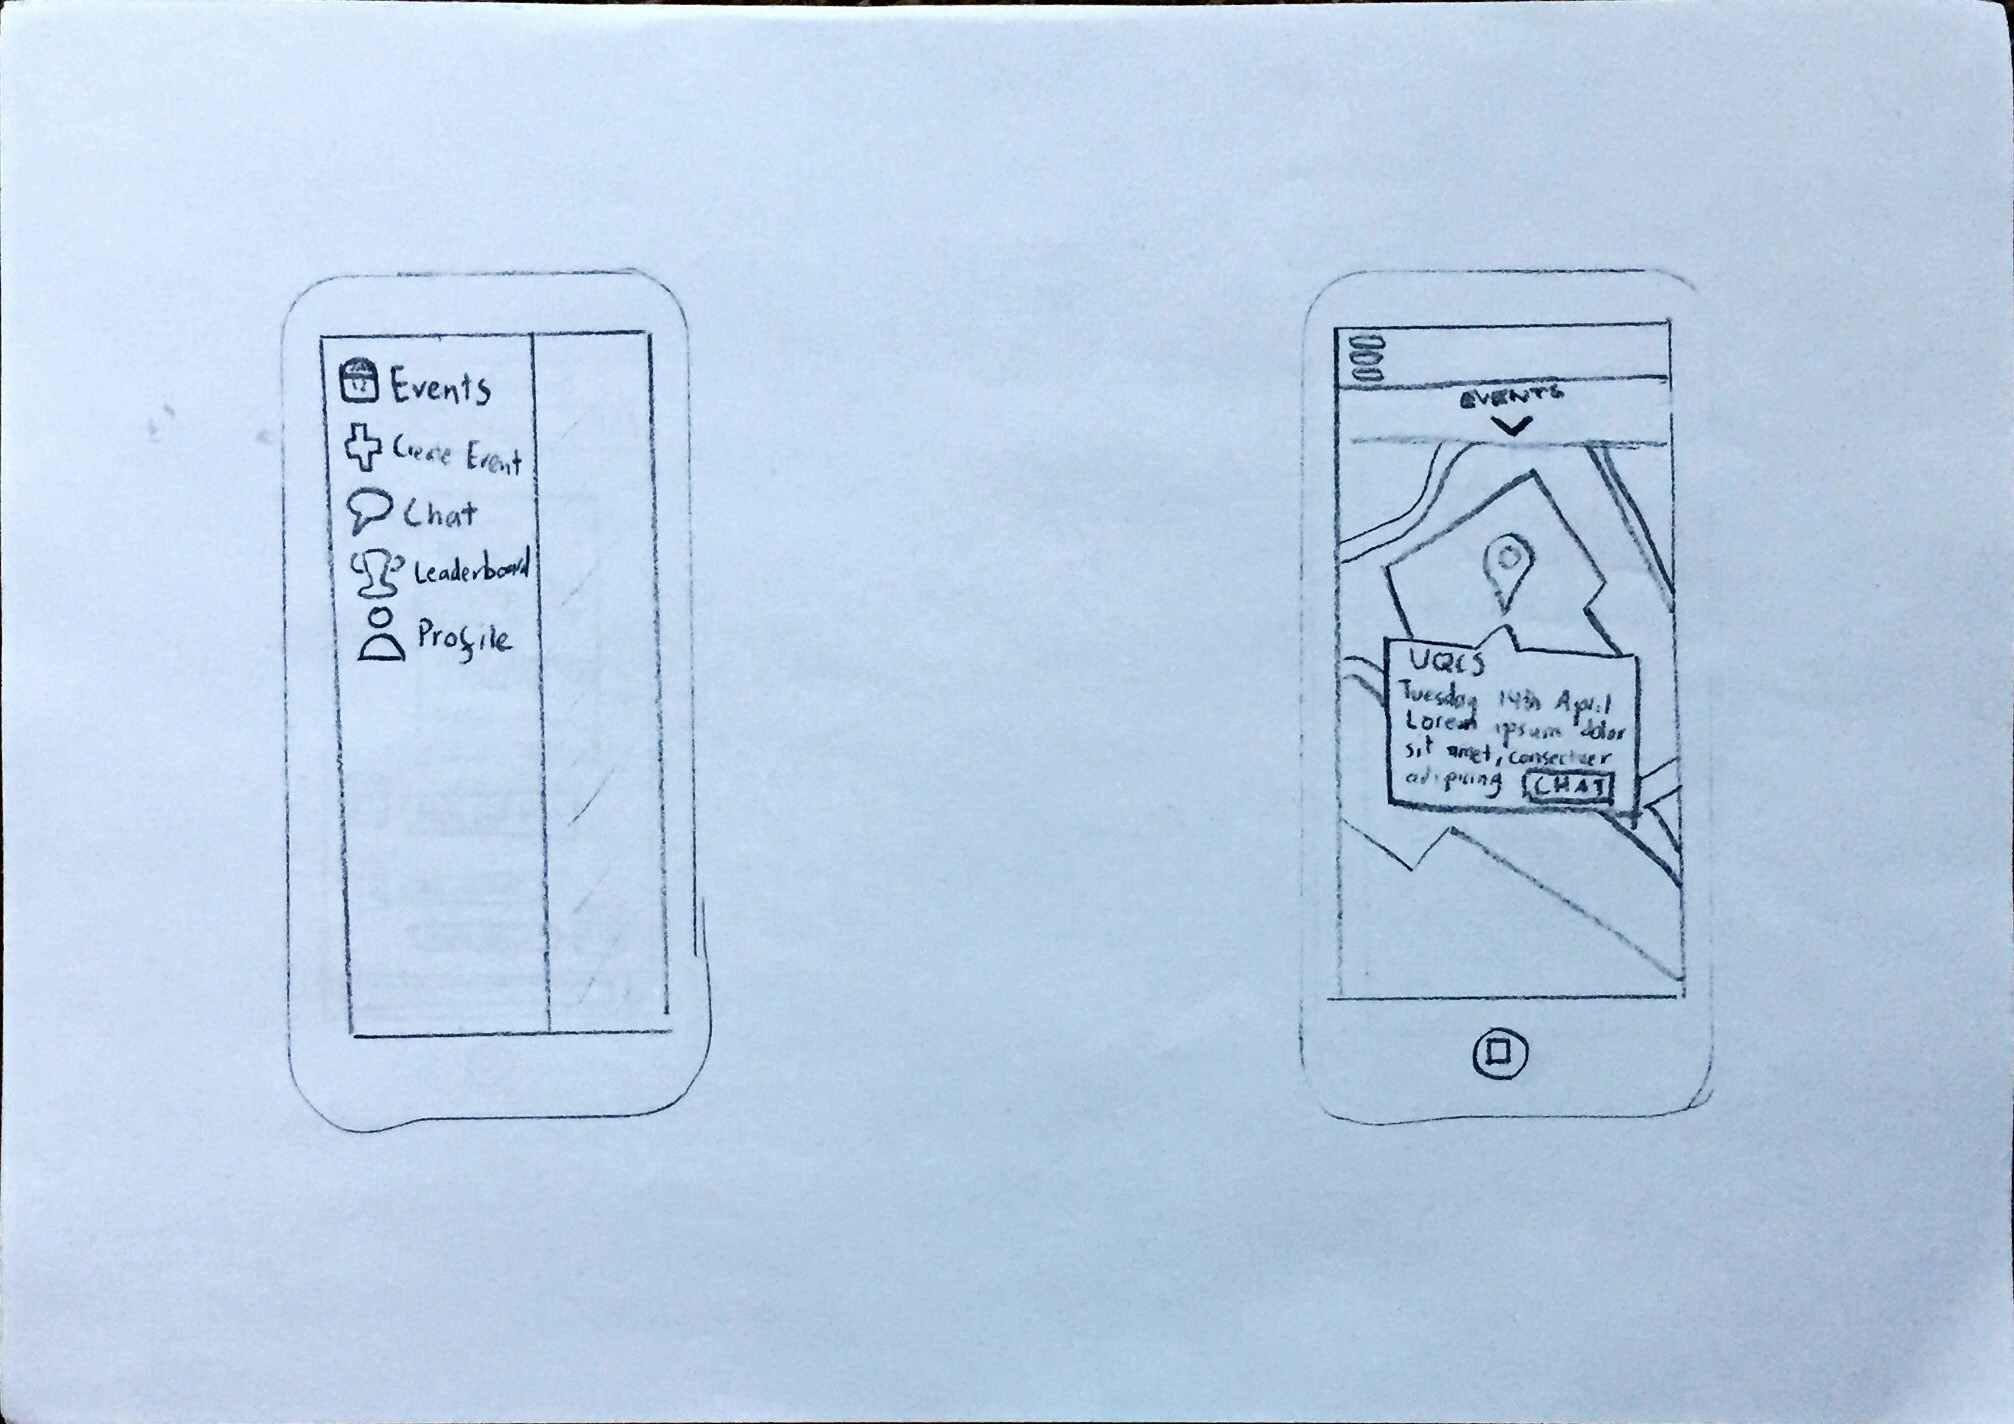 Events
Create Event
Chat
Leaderboard
Profile
EVENTS
UQCS
Tuesday 14th April
Lorem ipsum dolor
sit amet, consectuer
adipiscing CHAT